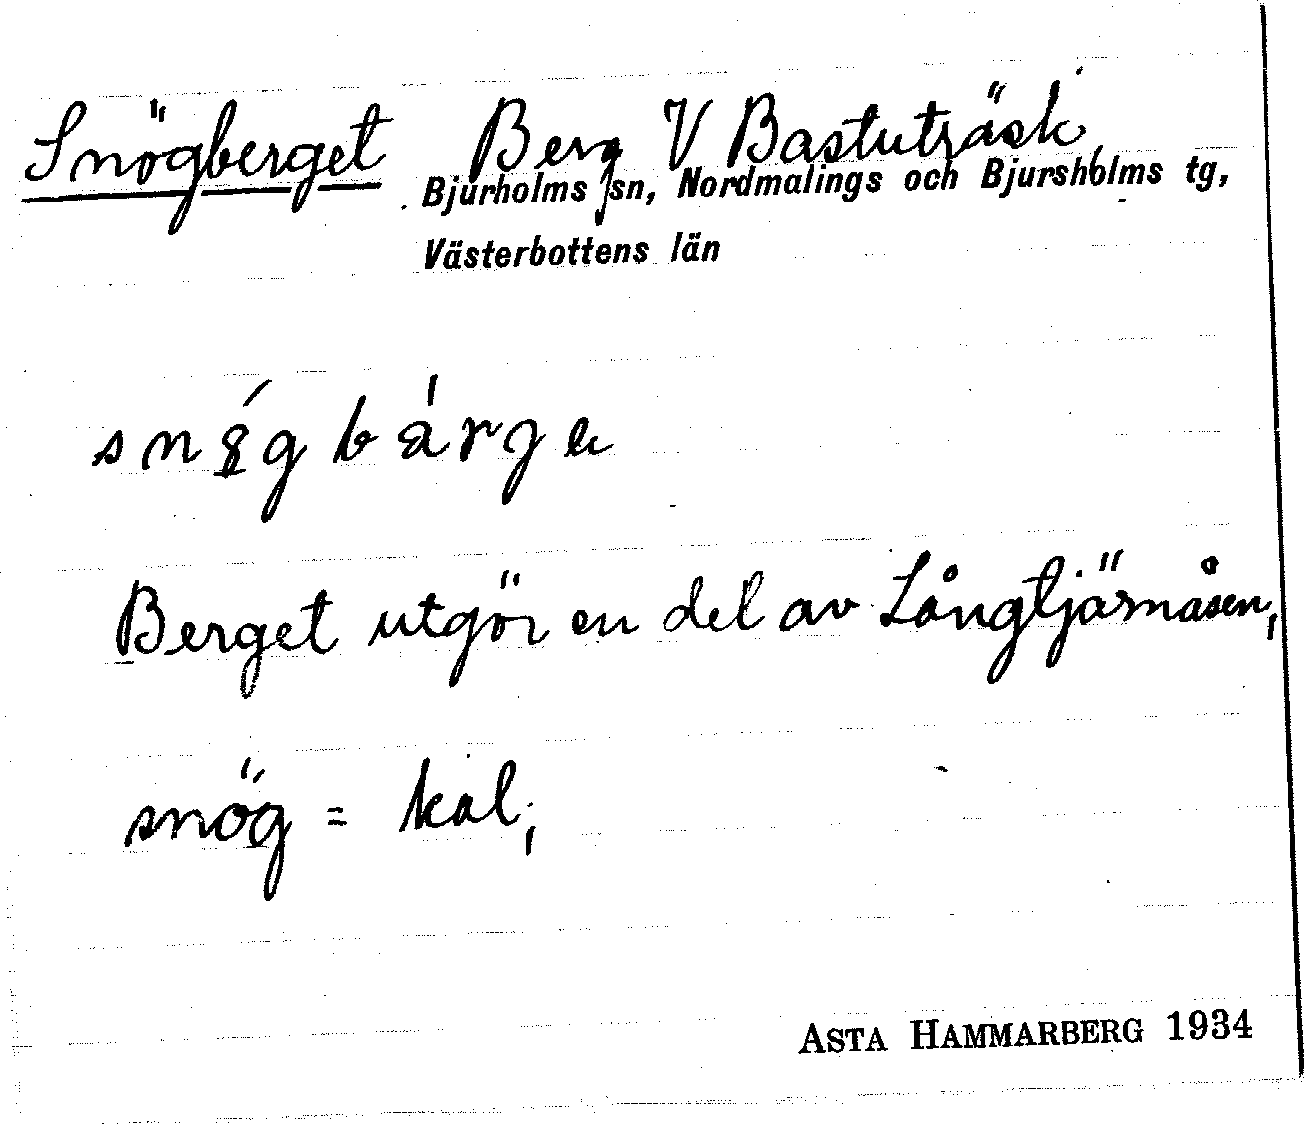 Snögberget Berg V Bastuträsk,
Bjurholms sn, Nordmalings och Bjursholms tg,
Västerbottens län
Berget utgör en del av Långtjärnåsen,
snög = kal,
ASTA HAMMARBERG 1934